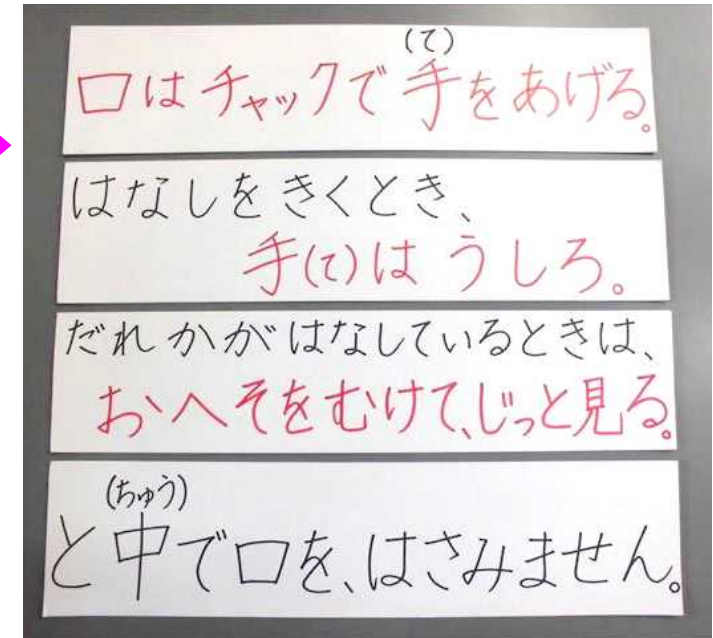 (て)
口はチャックで手をあげる。
はなしをきくとき、
手(て)は うしろ。
だれかがはなしているときは、
おへそをむけて、じっと見る。
(ちゅう)
と中で口を、はさみません。